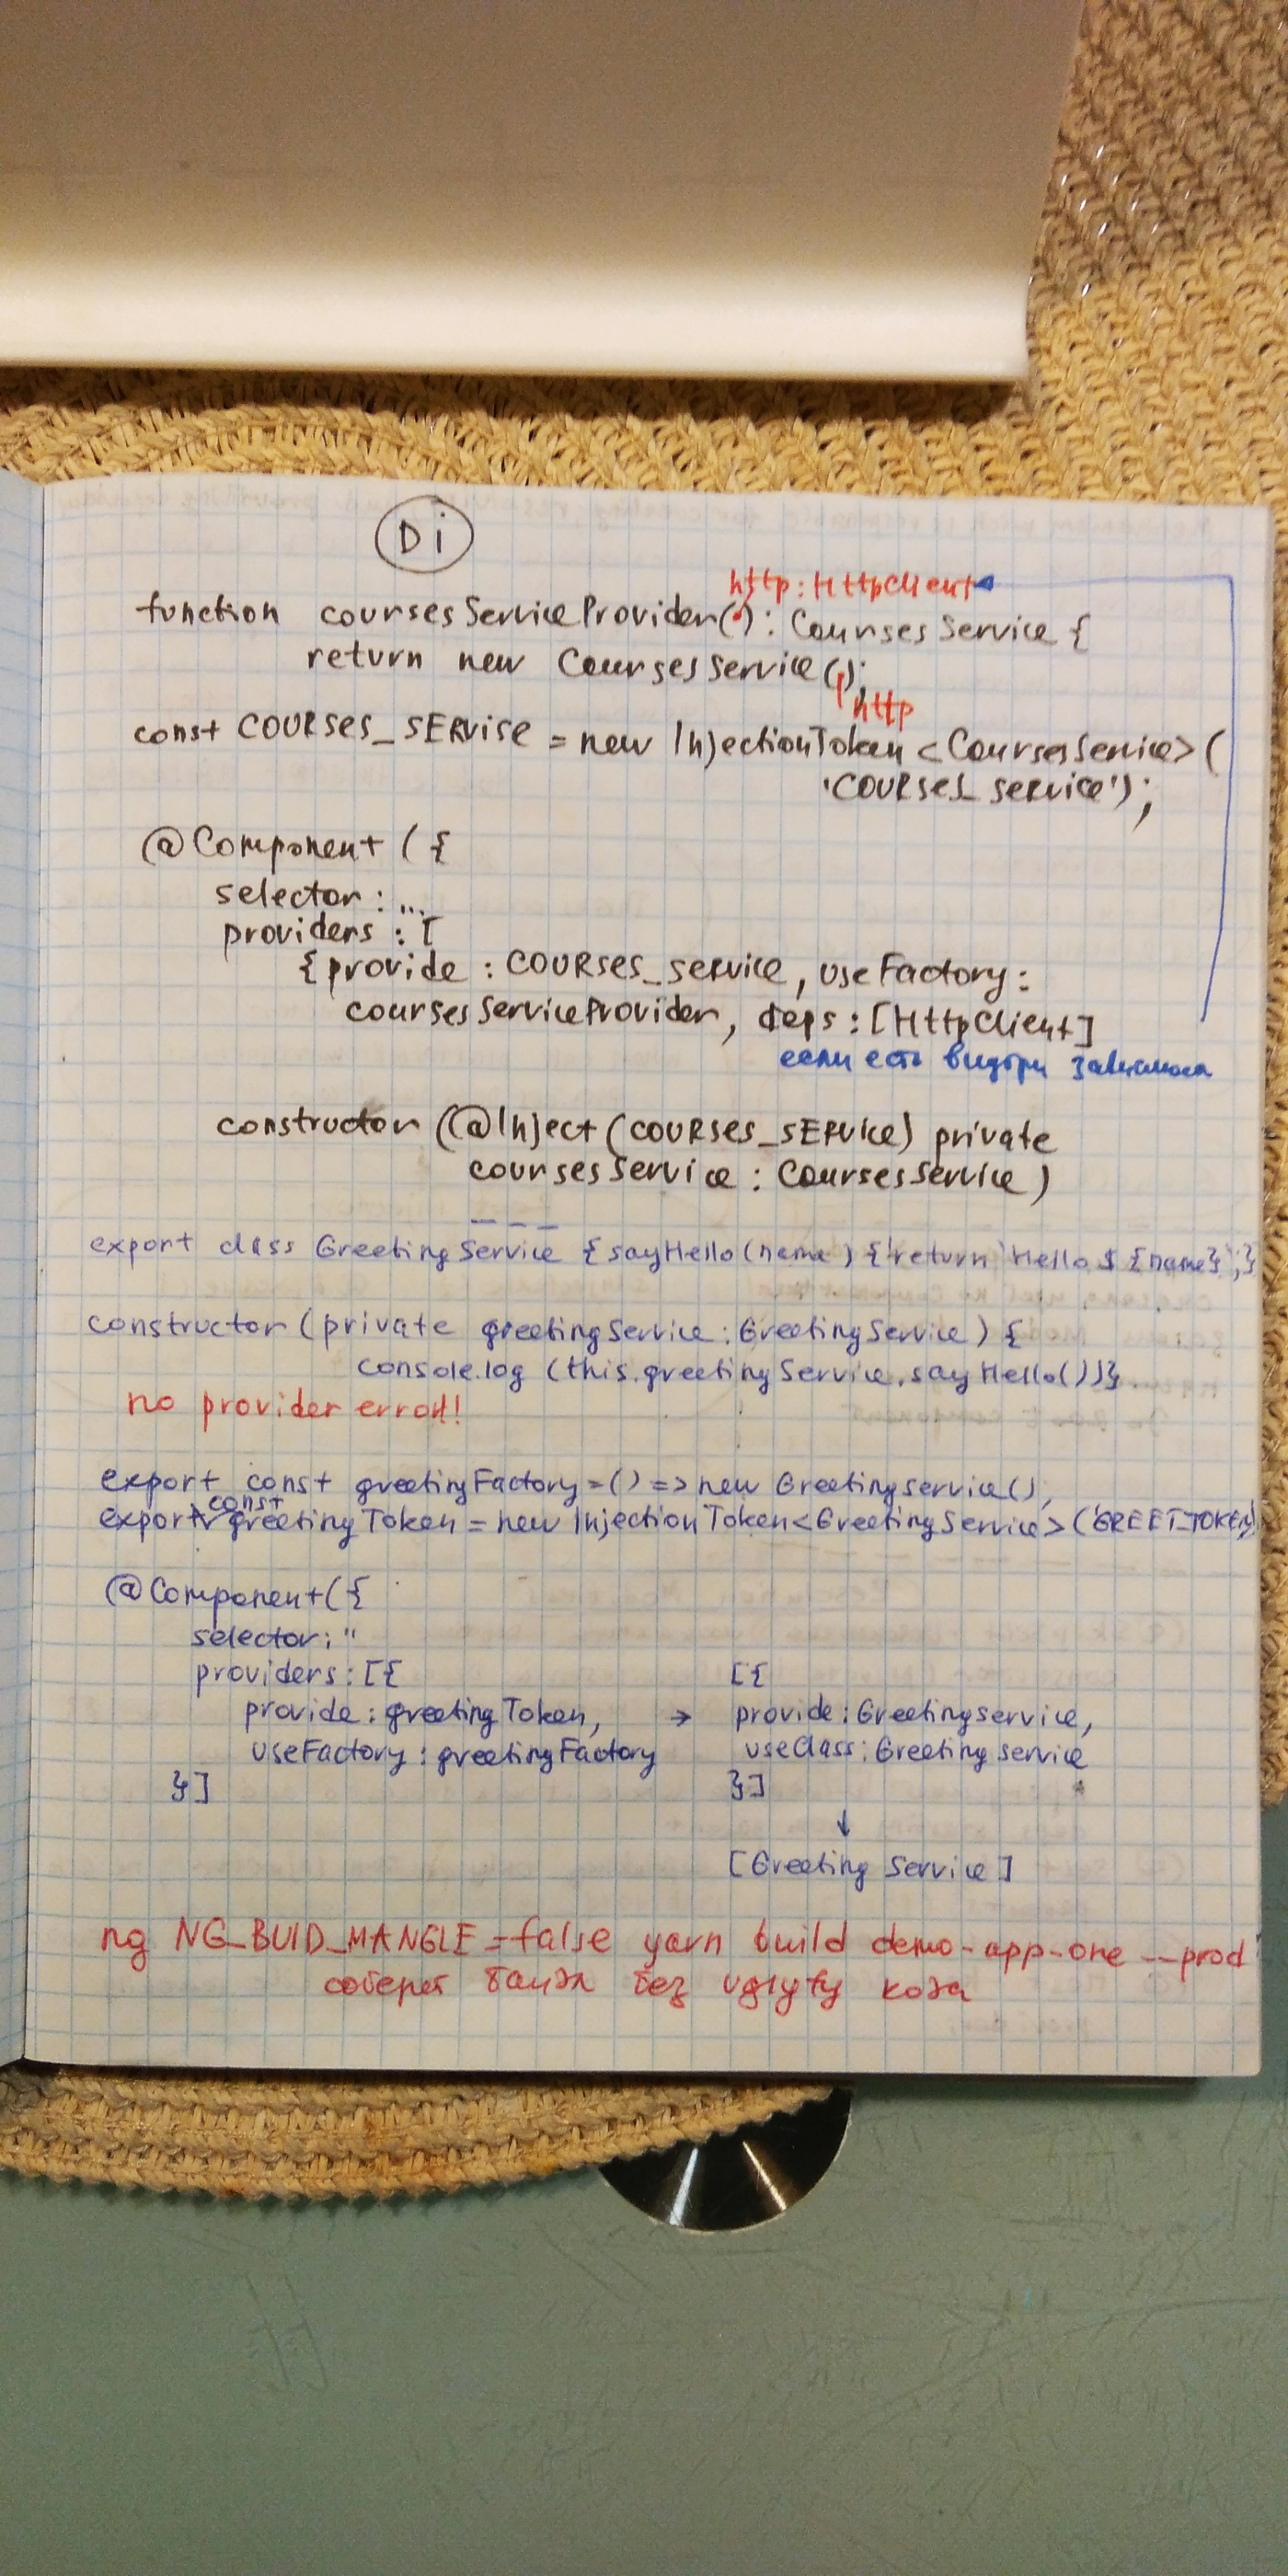 Di
http: HttpClient
function coursesServiceProvider(): CoursesService {
return new CoursesService();
http
const COURSES_SERVISE = new InjectionToken<CoursesService>(
'COURSES_SERVICE');
@Component ({
selector: ...
providers: [
{provide: COURSES_SERVICE, useFactory:
coursesServiceProvider, deps: [HttpClient]
если есть внутри
constructor (@Inject(COURSES_SERVICE) private
coursesService: CoursesService)
export class GreetingService {sayHello(name) {return `Hello ${name}`;}
constructor (private greetingService: GreetingService) {
console.log (this.greetingService.sayHello())}
no provider error!
export const greetingFactory = () => new GreetingService();
export const greetingToken = new InjectionToken<GreetingService>('GREET_TOKEN')
@Component({
selector: "
providers: [{ [{
provide: greetingToken, → provide: GreetingService,
useFactory: greetingFactory useClass: GreetingService
}] }]
↓
[GreetingService]
ng NG_BUID_MANGLE=false yarn build demo-app-one --prod
соберет бандл без uglyfy кода